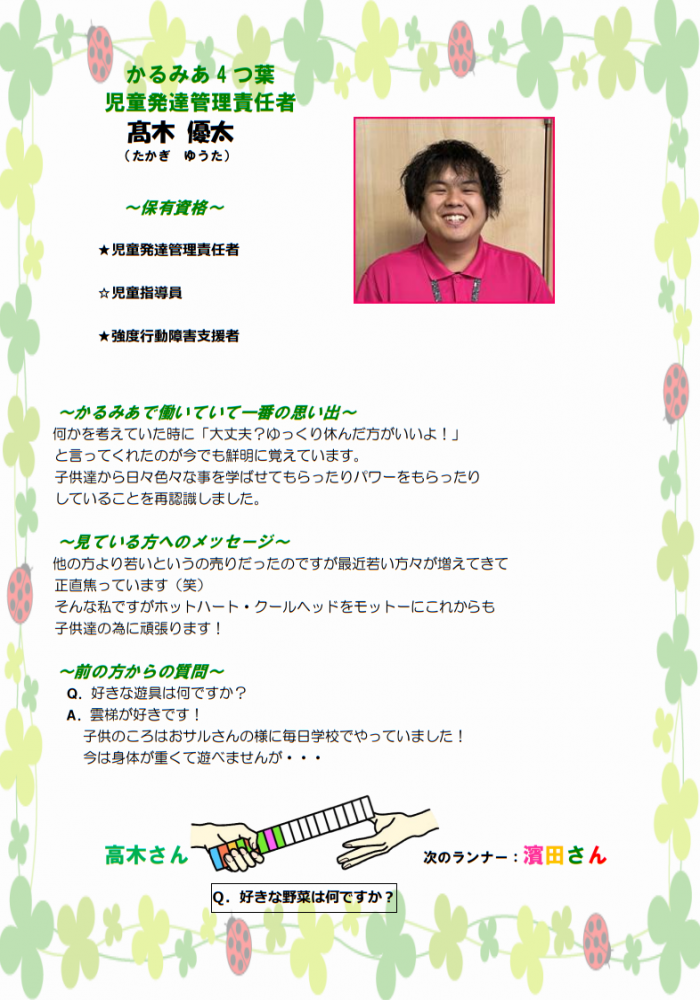 かるみあ4つ葉
児童発達管理責任者
髙木 優太
（たかぎ　ゆうた）
～保有資格～
★児童発達管理責任者
☆児童指導員
★強度行動障害支援者
～かるみあで働いていて一番の思い出～
何かを考えていた時に「大丈夫？ゆっくり休んだ方がいいよ！」
と言ってくれたのが今でも鮮明に覚えています。
子供達から日々色々な事を学ばせてもらったりパワーをもらったり
していることを再認識しました。
～見ている方へのメッセージ～
他の方より若いというの売りだったのですが最近若い方々が増えてきて
正直焦っています（笑）
そんな私ですがホットハート・クールヘッドをモットーにこれからも
子供達の為に頑張ります！
～前の方からの質問～
Q．好きな遊具は何ですか？
A．雲梯が好きです！
子供のころはおサルさんの様に毎日学校でやっていました！
今は身体が重くて遊べませんが・・・
高木さん
次のランナー：濱田さん
Q．好きな野菜は何ですか？